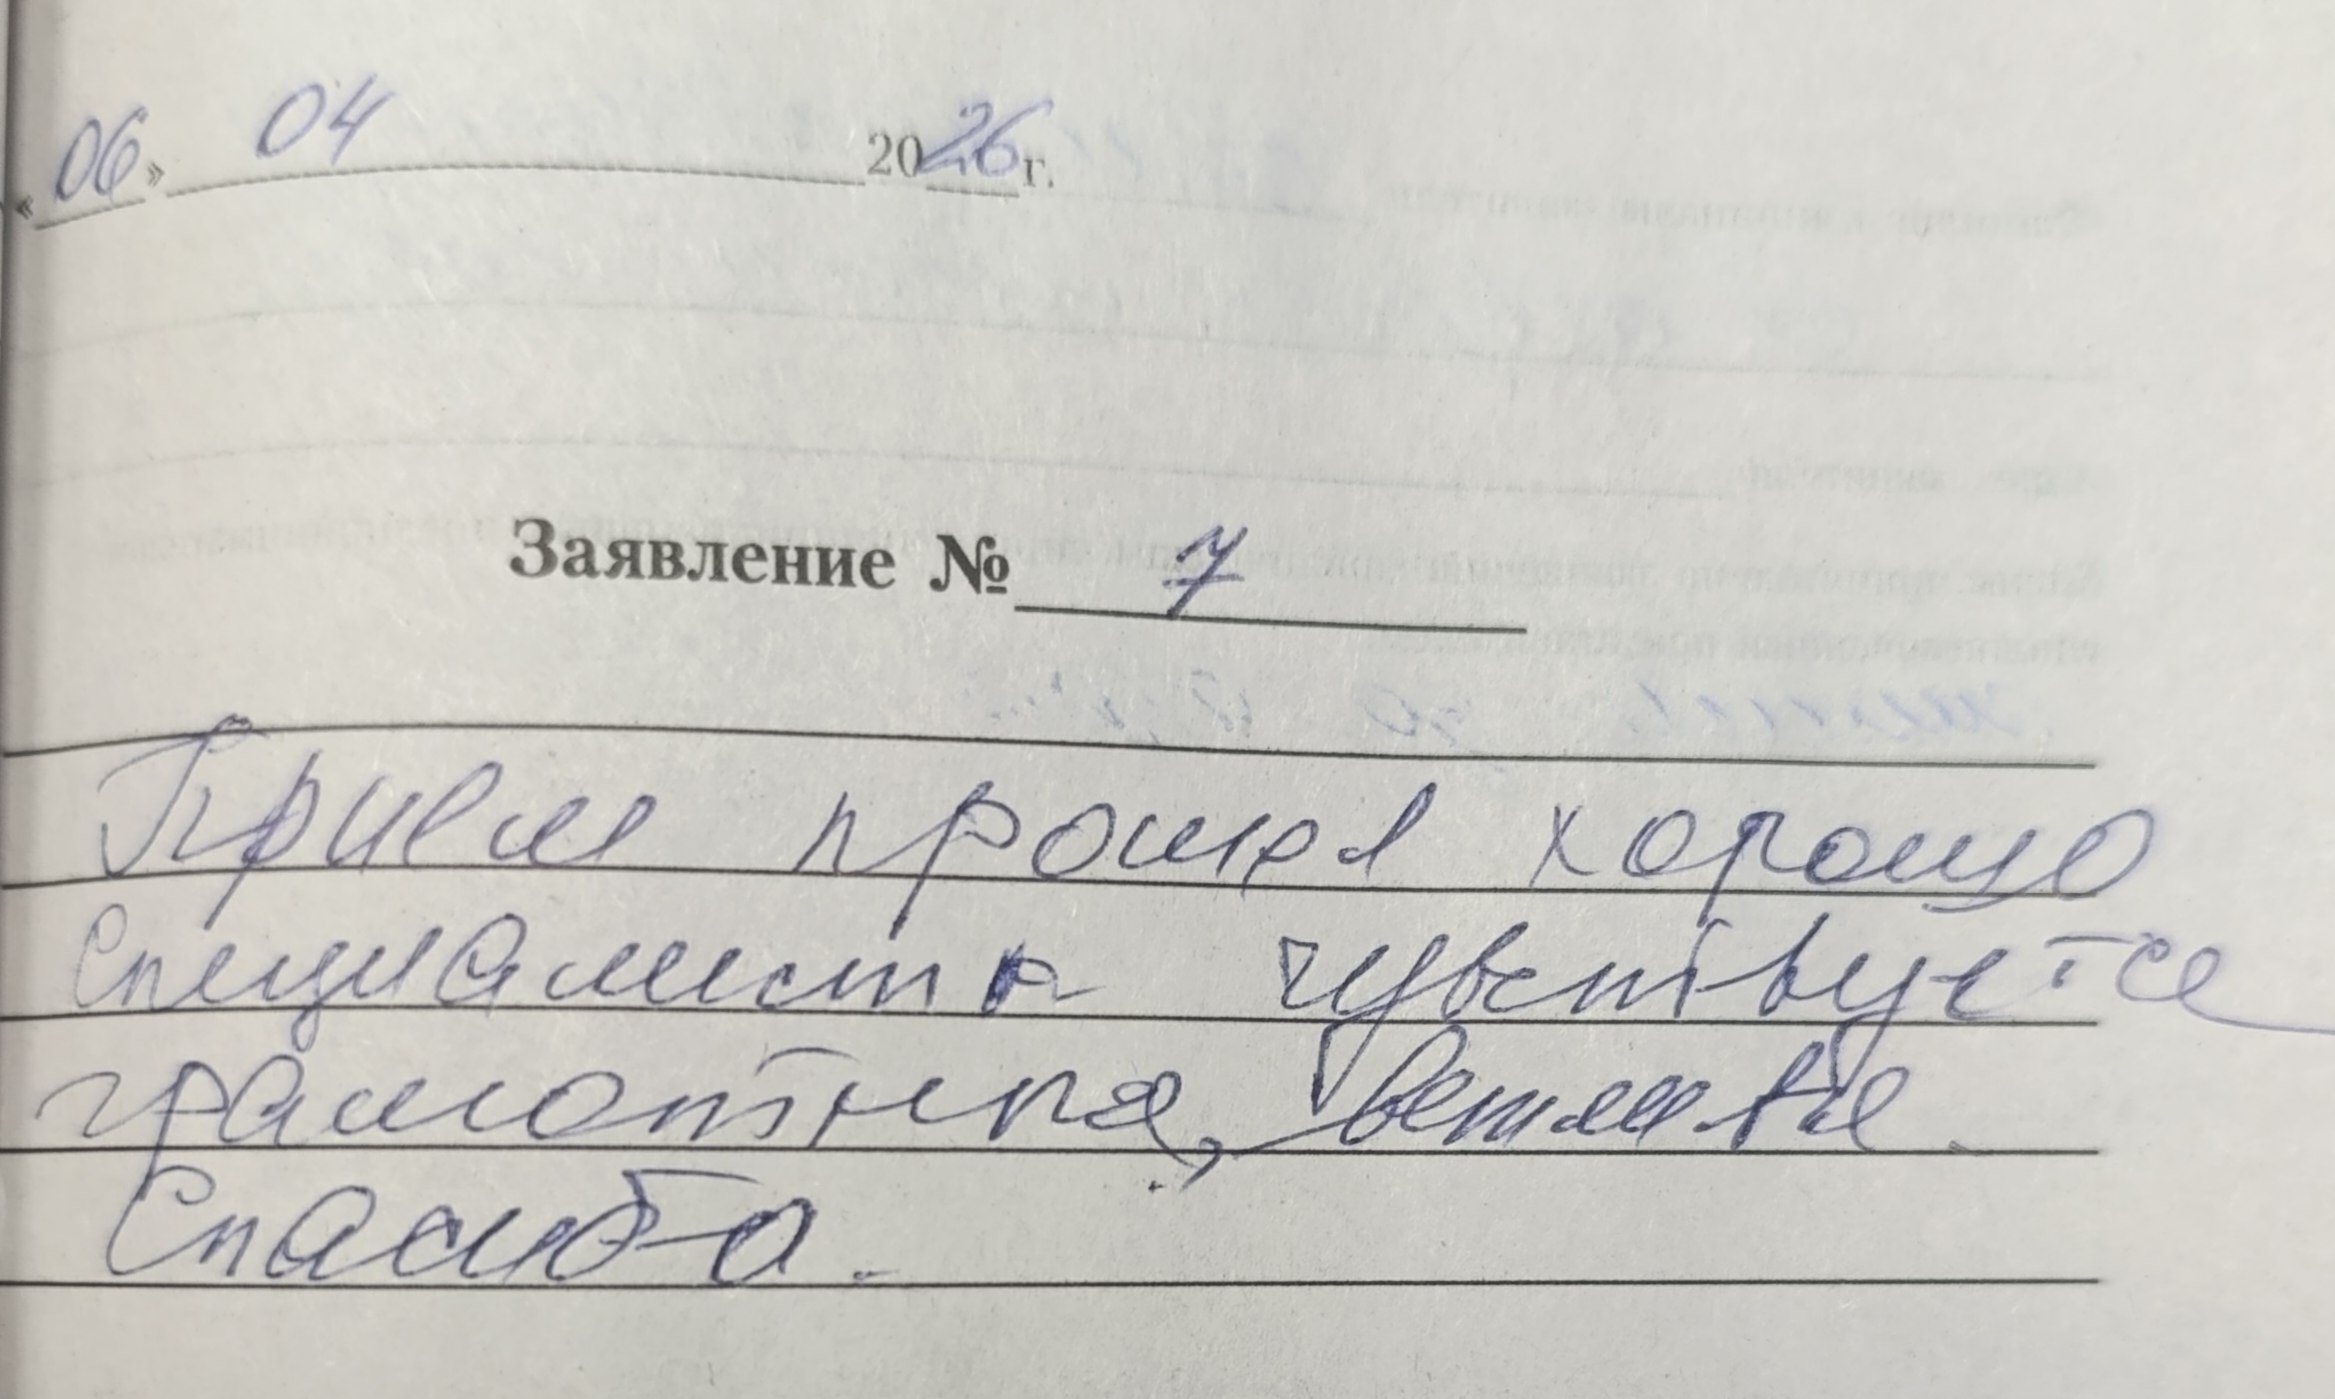 «06» 04 2026г.
Заявление № 7
Прием прошел хорошо
Специалист чувствуется
грамотная, вежливая.
Спасибо.